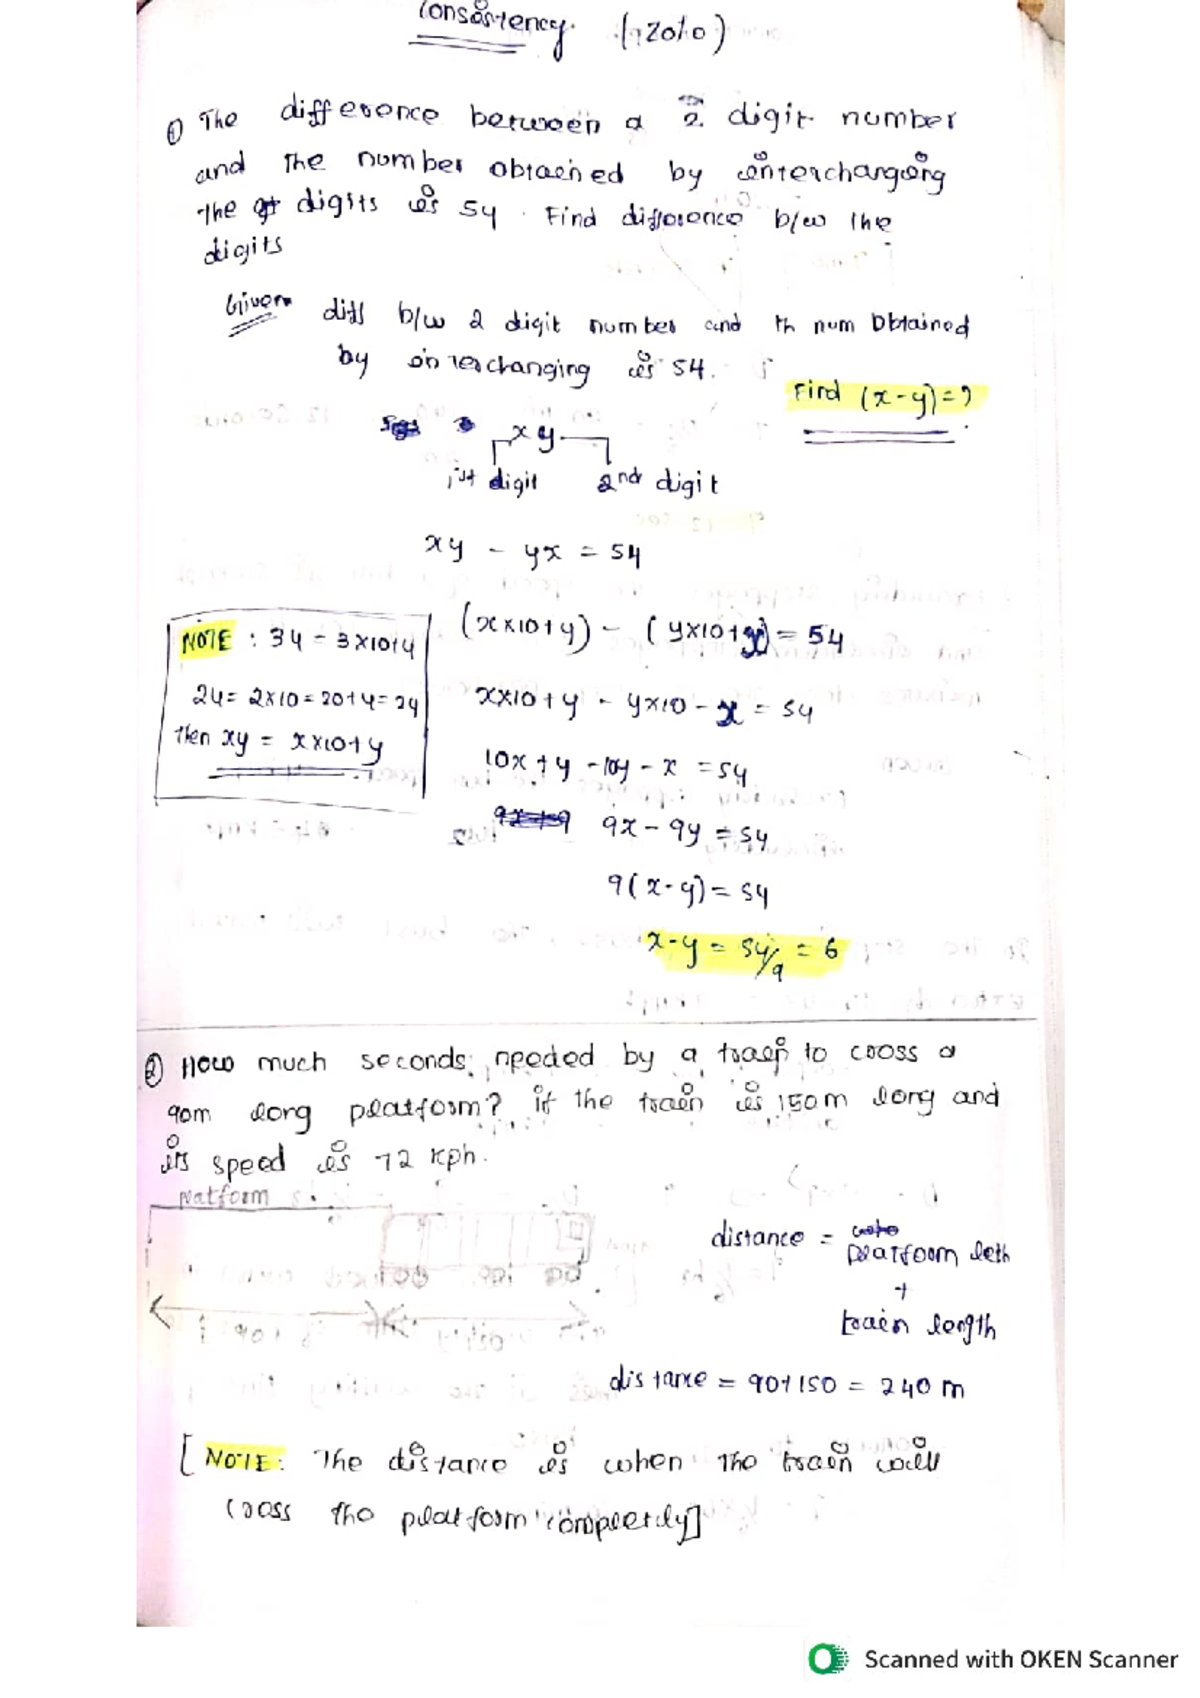 Consistency
① The difference between a 2 digit number
and The number obtained by interchanging
The digits is 54. Find difference b/w the
digits
Given diff b/w 2 digit number and th num Obtained
by interchanging is 54.
Find (x-y)=?
xy
1st digit 2nd digit
xy - yx = 54
(x×10+y) - (y×10+x) = 54
NOTE : 34 = 3×10+4
24= 2×10=20+4=24
then xy = x×10+y
x×10+y - y×10 - x = 54
10x+y -10y - x = 54
9x - 9y = 54
9(x-y) = 54
x-y = 54/9 = 6
② How much seconds needed by a train to cross a
90m long platform? if the train is 150m long and
its speed is 72 kph.
platform
distance = platform leth
+
train length
distance = 90+150 = 240 m
[NOTE: The distance is when The train will
cross the platform completly]
Scanned with OKEN Scanner